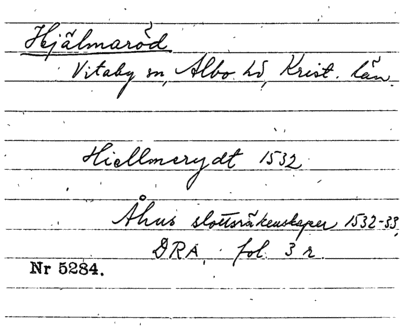 Hjälmaröd
Vitaby sn, Albo hd, Krist. län.
Hiellmerydt 1532
Åhus slottsräkenskaper 1532-33,
DRA. fol. 3 r.
Nr 5284.